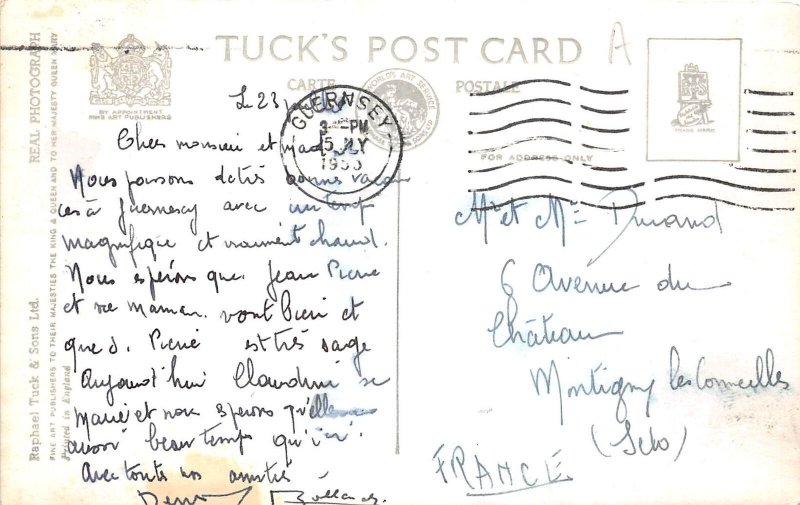 TUCK'S POST CARD
CARTE POSTALE
BY APPOINTMENT
FINE ART PUBLISHERS
FOR ADDRESS ONLY
TRADE MARK
A
GUERNSEY
3 - PM
5 JLY
Raphael Tuck & Sons Ltd.
REAL PHOTOGRAPH
FINE ART PUBLISHERS TO THEIR MAJESTIES THE KING & QUEEN AND TO HER MAJESTY QUEEN MARY
Printed in England
Le 23
Chers monsieur et
Nous passons de très bonnes vacan
ces à Guernesey avec un temp
magnifique et vraiment chaud.
Nous espérons que Jean Pierre
et sa maman vont bien et
que J. Pierre est très sage
Aujourd'hui Claudine se
marie et nous espérons qu'elle
aussi beau temps qu'ici
Avec toutes nos amitiés
Mr et Me Durand
6 Avenue du
Château
Montigny les Cormeilles
(S et O)
FRANCE